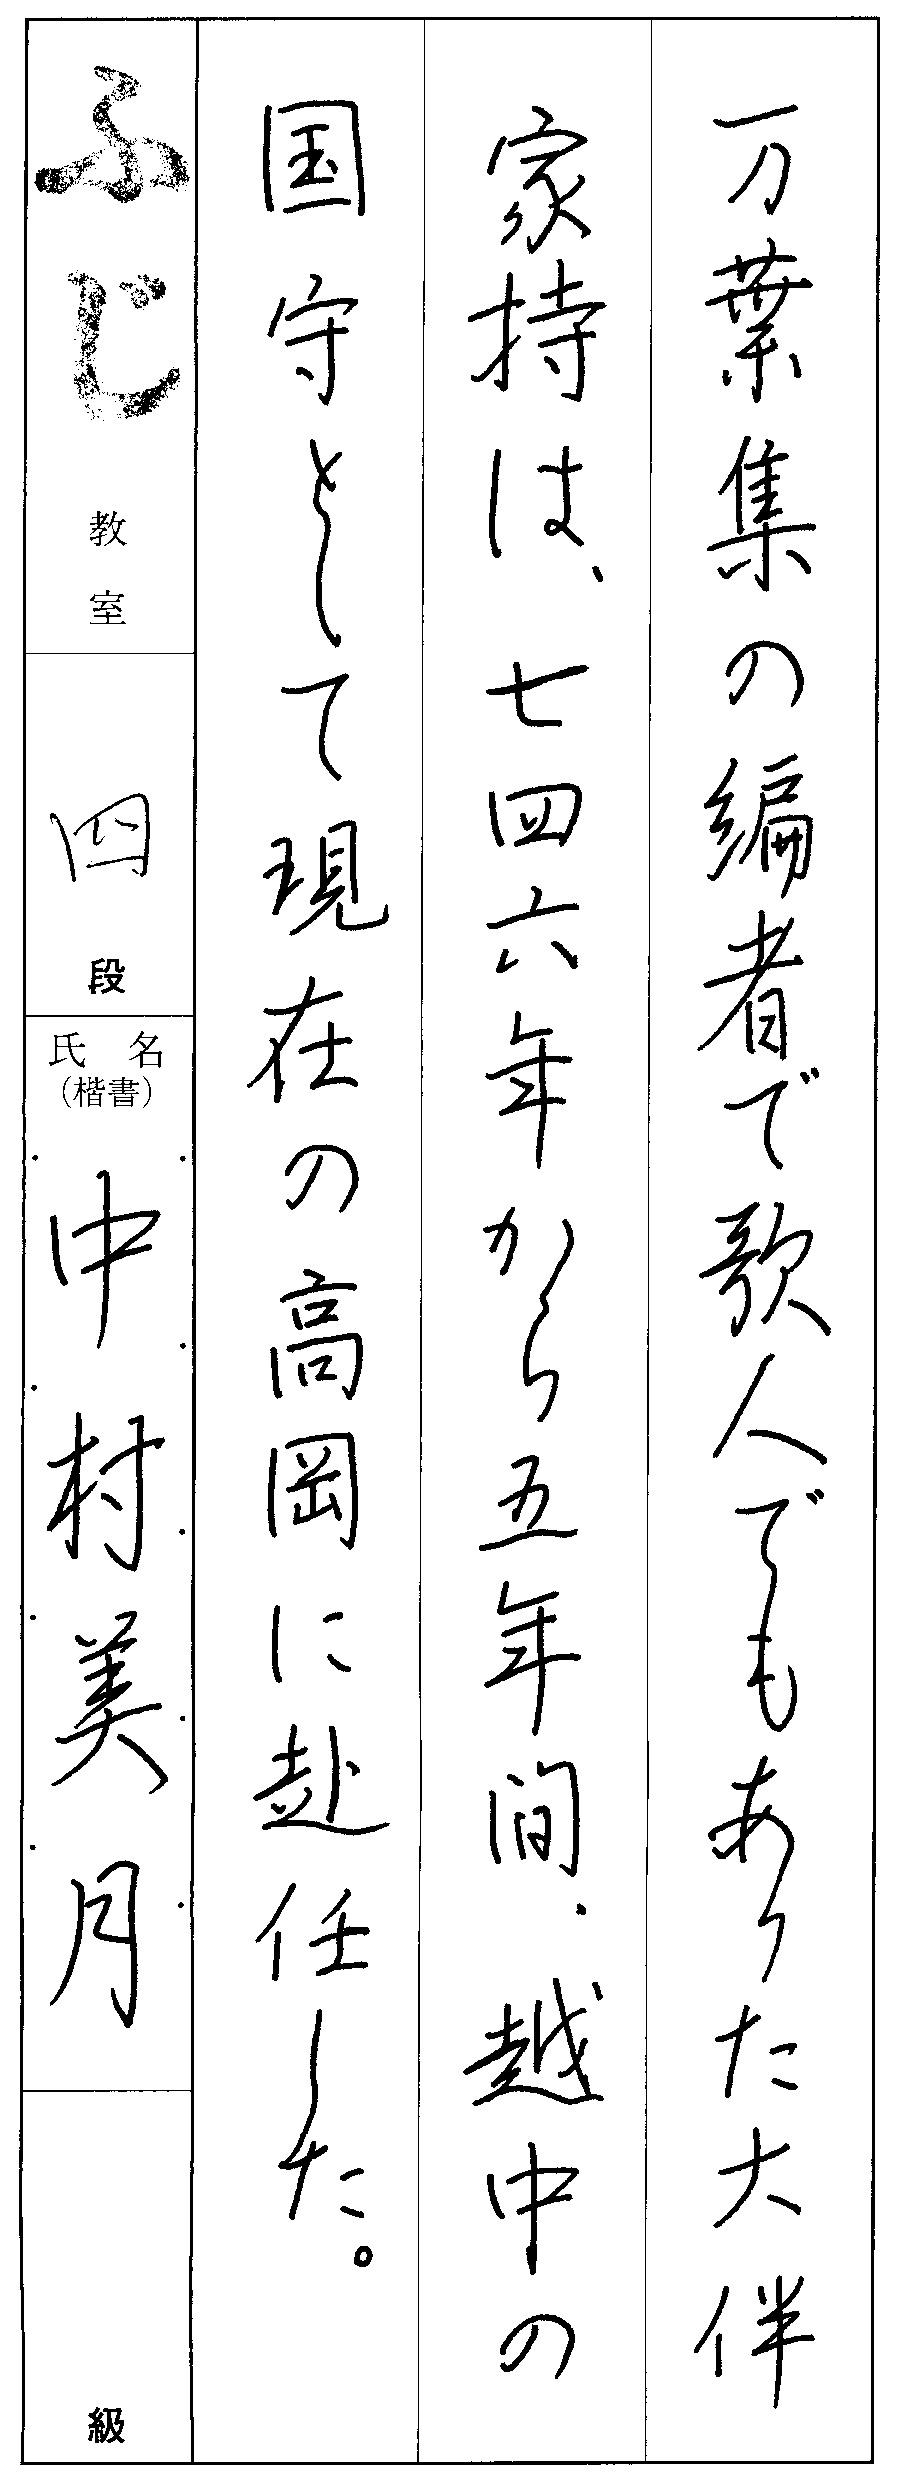 万葉集の編者で歌人でもあった大伴
家持は、七四六年から五年間、越中の
国守として現在の高岡に赴任した。
ふじ教室
四段
氏名
(楷書)
中村美月
級